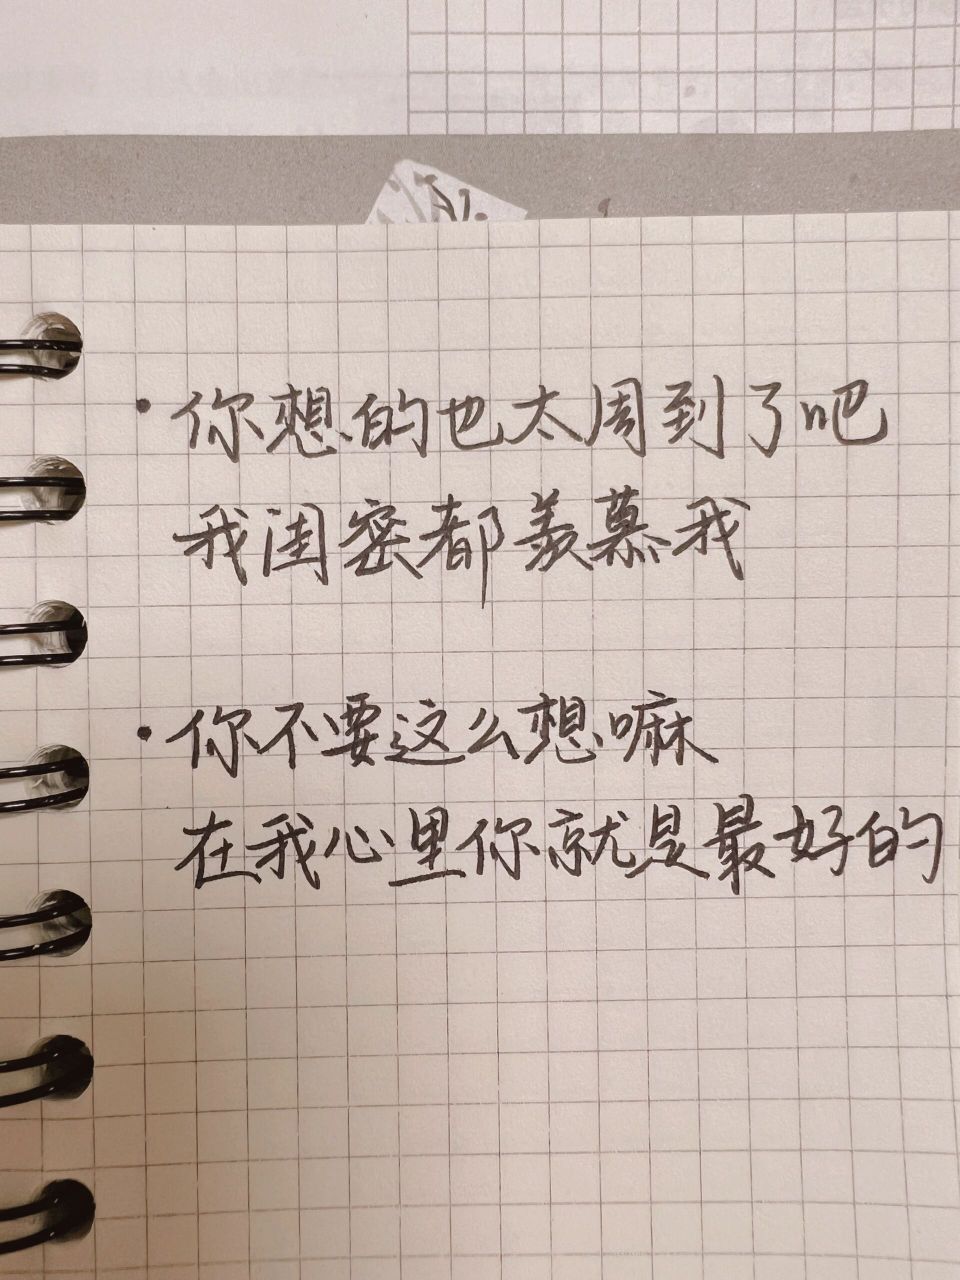 ·你想的也太周到了吧
我闺密都羡慕我
·你不要这么想嘛
在我心里你就是最好的